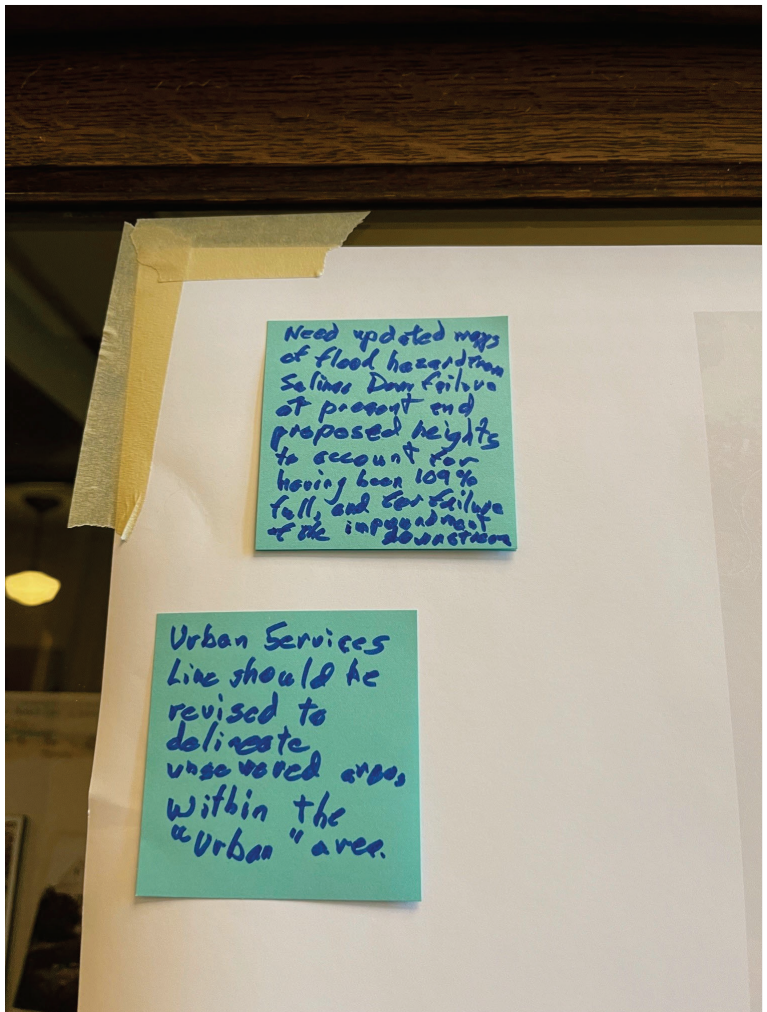 Need updated maps
of flood hazard from
Salinas Dam failure
at present and
proposed heights
to account for
having been 109%
full, and for failure
of the impoundment
downstream
Urban Services
Line should be
revised to
delineate
unsewered areas
within the
"Urban" area.